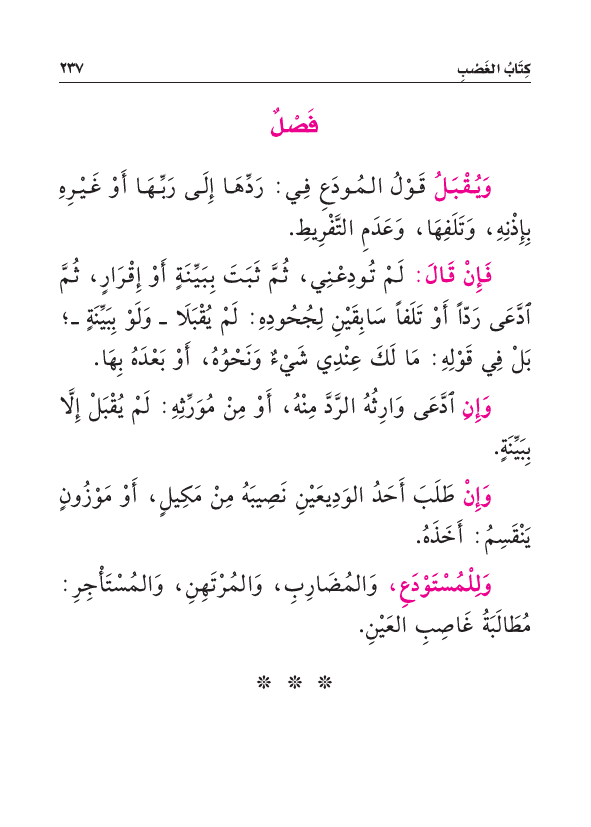 كِتَابُ الغَصْبِ ٢٣٧
فَصْلٌ
وَيُقْبَلُ قَوْلُ المُودَعِ فِي: رَدِّهَا إِلَى رَبِّهَا أَوْ غَيْرِهِ
بِإِذْنِهِ، وَتَلَفِهَا، وَعَدَمِ التَّفْرِيطِ.
فَإِنْ قَالَ: لَمْ تُودِعْنِي، ثُمَّ ثَبَتَ بِبَيِّنَةٍ أَوْ إِقْرَارٍ، ثُمَّ
ٱدَّعَى رَدّاً أَوْ تَلَفاً سَابِقَيْنِ لِجُحُودِهِ: لَمْ يُقْبَلَا ـ وَلَوْ بِبَيِّنَةٍ ـ؛
بَلْ فِي قَوْلِهِ: مَا لَكَ عِنْدِي شَيْءٌ وَنَحْوُهُ، أَوْ بَعْدَهُ بِهَا.
وَإِنِ ٱدَّعَى وَارِثُهُ الرَّدَّ مِنْهُ، أَوْ مِنْ مُوَرِّثِهِ: لَمْ يُقْبَلْ إِلَّا
بِبَيِّنَةٍ.
وَإِنْ طَلَبَ أَحَدُ الوَدِيعَيْنِ نَصِيبَهُ مِنْ مَكِيلٍ، أَوْ مَوْزُونٍ
يَنْقَسِمُ: أَخَذَهُ.
وَلِلْمُسْتَوْدَعِ، وَالمُضَارِبِ، وَالمُرْتَهِنِ، وَالمُسْتَأْجِرِ:
مُطَالَبَةُ غَاصِبِ العَيْنِ.